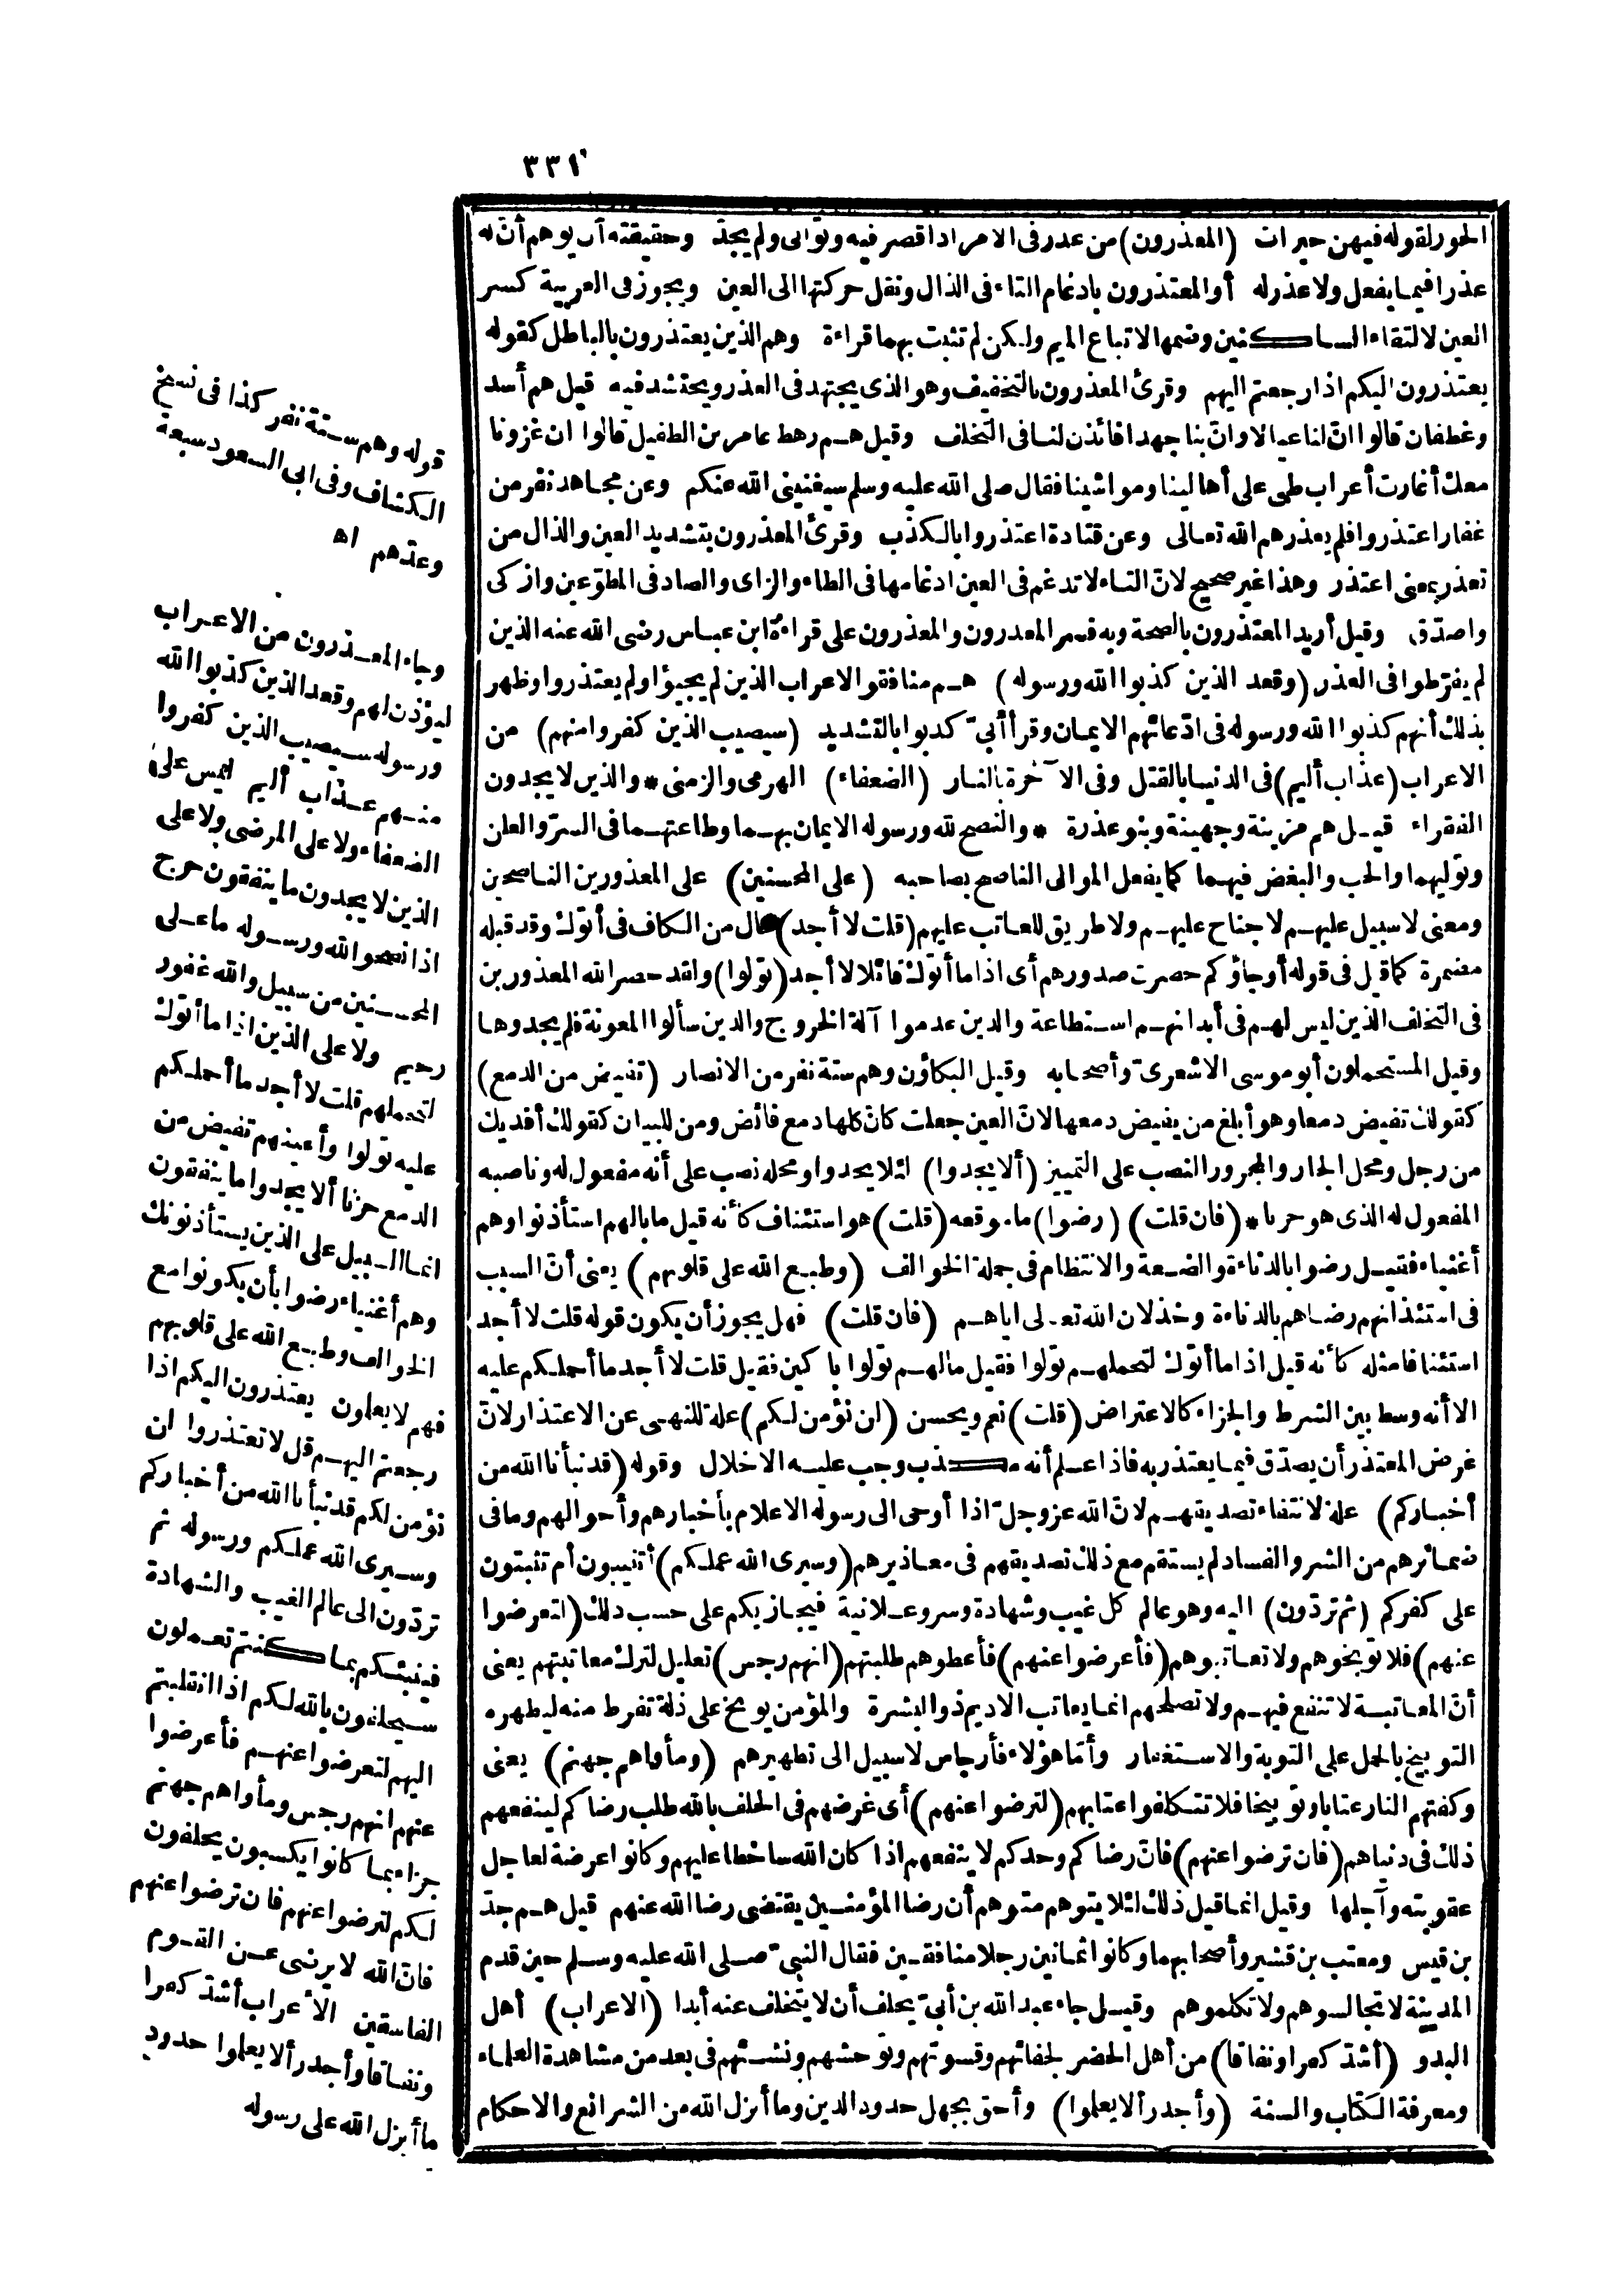 ٣٣١
الحور لقوله فيهن خيرات (المعذرون) من عذر فى الامر اذا قصر فيه وتوانى ولم يجدّ وحقيقته أن يوهم أنّ له
عذرا فيما يفعل ولا عذر له أو المعتذرون بادغام التاء فى الذال ونقل حركتها الى العين ويجوز فى العربية كسر
العين لالتقاء الساكنين وضمها لاتباع الميم ولكن لم تثبت بهما قراءة وهم الذين يعتذرون بالباطل كقوله
يعتذرون اليكم اذا رجعتم اليهم وقرئ المعذرون بالتخفيف وهو الذى يجتهد فى العذر ويحتشد فيه قيل هم أسد
وغطفان قالوا انّ لنا عيالا وانّ بنا جهدا فائذن لنا فى التخلف وقيل هم رهط عامر بن الطفيل قالوا ان غزونا
معك أغارت أعراب طى على أهالينا ومواشينا فقال صلى الله عليه وسلم سيغنينى الله عنكم وعن مجاهد نفر من
غفار اعتذروا فلم يعذرهم الله تعالى وعن قتادة اعتذروا بالكذب وقرئ المعذرون بتشديد العين والذال من
تعذر بمعنى اعتذر وهذا غير صحيح لانّ التاء لا تدغم فى العين ادغامها فى الطاء والزاى والصاد فى المطوّعين وازكى
واصدّق وقيل أريد المعتذرون بالصحة وبه فسر المعذرون والمعذرون على قراءة ابن عباس رضى الله عنه الذين
لم يفرّطوا فى العذر (وقعد الذين كذبوا الله ورسوله) هم منافقو الاعراب الذين لم يجيؤا ولم يعتذروا وظهر
بذلك أنهم كذبوا الله ورسوله فى ادّعائهم الايمان وقرأ أبىّ كذبوا بالتشديد (سيصيب الذين كفروا منهم) من
الاعراب (عذاب أليم) فى الدنيا بالقتل وفى الآخرة بالنار (الضعفاء) الهرمى والزمنى * والذين لا يجدون
الفقراء قيل هم مزينة وجهينة وبنو عذرة * والنصح لله ورسوله الايمان بهما وطاعتهما فى السرّ والعلن
وتوليهما والحب والبغض فيهما كما يفعل الموالى الناصح بصاحبه (على المحسنين) على المعذورين الناصحين
ومعنى لا سبيل عليهم لا جناح عليهم ولا طريق للعاتب عليهم (قلت لا أجد) حال من الكاف فى أتوك وقد قبله
مضمرة كما قيل فى قوله أو جاؤكم حصرت صدورهم أى اذا ما أتوك قائلا لا أجد (تولوا) ولقد حصر الله المعذورين
فى التخلف الذين ليس لهم فى أبدانهم استطاعة والذين عدموا آلة الخروج والذين سألوا المعونة فلم يجدوها
وقيل المستحملون أبو موسى الاشعرىّ وأصحابه وقيل البكاؤن وهم ستة نفر من الانصار (تفيض من الدمع)
كقولك تفيض دمعا وهو أبلغ من يفيض دمعها لانّ العين جعلت كانّ كلها دمع فائض ومن للبيان كقولك أفديك
من رجل ومحل الجار والمجرور النصب على التمييز (ألا يجدوا) لئلا يجدوا ومحله نصب على أنه مفعول له وناصبه
المفعول له الذى هو حزنا * (فان قلت) (رضوا) ما موقعه (قلت) هو استئناف كأنه قيل ما بالهم استأذنوا وهم
أغنياء فقيل رضوا بالدناءة والضعة والانتظام فى جملة الخوالف (وطبع الله على قلوبهم) يعنى أنّ السبب
فى استئذانهم رضاهم بالدناءة وخذلان الله تعالى اياهم (فان قلت) فهل يجوز أن يكون قوله قلت لا أجد
استئنافا مثله كأنه قيل اذا ما أتوك لتحملهم تولوا فقيل ما لهم تولوا باكين فقيل قلت لا أجد ما أحملكم عليه
الا أنه وسط بين الشرط والجزاء كالاعتراض (قلت) نعم ويحسن (لن نؤمن لكم) علة للنهى عن الاعتذار لانّ
غرض المعتذر أن يصدّق فيما يعتذر به فاذا علم أنه مكذب وجب عليه الاخلال وقوله (قد نبأنا الله من
أخباركم) علة لانتفاء تصديقهم لانّ الله عز وجلّ اذا أوحى الى رسوله الاعلام بأخبارهم وأحوالهم وما فى
ضمائرهم من الشر والفساد لم يستقم مع ذلك تصديقهم فى معاذيرهم (وسيرى الله عملكم) أتنيبون أم تثبتون
على كفركم (ثم تردّون) اليه وهو عالم كل غيب وشهادة وسر وعلانية فيجازيكم على حسب ذلك (لتعرضوا
عنهم) فلا توبخوهم ولا تعاتبوهم (فأعرضوا عنهم) فأعطوهم طلبتهم (انهم رجس) تعليل لترك معاتبتهم يعنى
أنّ المعاتبة لا تنفع فيهم ولا تصلحهم انما يعاتب الاديم ذو البشرة والمؤمن يوبخ على زلة تفرط منه ليطهره
التوبيخ بالحمل على التوبة والاستغفار وأمّا هؤلاء فأرجاس لا سبيل الى تطهيرهم (ومأواهم جهنم) يعنى
وكفتهم النار عتابا وتوبيخا فلا تتكلفوا عتابهم (لترضوا عنهم) أى غرضهم فى الحلف بالله طلب رضاكم لينفعهم
ذلك فى دنياهم (فان ترضوا عنهم) فانّ رضاكم وحدكم لا ينفعهم اذا كان الله ساخطا عليهم وكانوا عرضة لعاجل
عقوبته وآجلها وقيل انما قيل ذلك لئلا يتوهم متوهم أن رضا المؤمنين يقتضى رضا الله عنهم قيل هم جدّ
بن قيس ومعتب بن قشير وأصحابهما وكانوا ثمانين رجلا منافقين فقال النبىّ صلى الله عليه وسلم حين قدم
المدينة لا تجالسوهم ولا تكلموهم وقيل جاء عبد الله بن أبىّ يحلف أن لا يتخلف عنه أبدا (الاعراب) أهل
البدو (أشدّ كفرا ونفاقا) من أهل الحضر لجفائهم وقسوتهم وتوحشهم ونشئهم فى بعد من مشاهدة العلماء
ومعرفة الكتاب والسنة (وأجدر ألا يعلموا) وأحق بجهل حدود الدين وما أنزل الله من الشرائع والاحكام
قوله وهم ستة نفر كذا فى نسخ
الكشاف وفى ابى السعود سبعة
وعدّهم اه
وجاء المعذرون من الاعراب
ليؤذن لهم وقعد الذين كذبوا الله
ورسوله سيصيب الذين كفروا
منهم عذاب أليم ليس على
الضعفاء ولا على المرضى ولا على
الذين لا يجدون ما ينفقون حرج
اذا نصحوا لله ورسوله ما على
المحسنين من سبيل والله غفور
رحيم ولا على الذين اذا ما أتوك
لتحملهم قلت لا أجد ما أحملكم
عليه تولوا وأعينهم تفيض من
الدمع حزنا ألا يجدوا ما ينفقون
انما السبيل على الذين يستأذنونك
وهم أغنياء رضوا بأن يكونوا مع
الخوالف وطبع الله على قلوبهم
فهم لا يعلمون يعتذرون اليكم اذا
رجعتم اليهم قل لا تعتذروا لن
نؤمن لكم قد نبأنا الله من أخباركم
وسيرى الله عملكم ورسوله ثم
تردّون الى عالم الغيب والشهادة
فينبئكم بما كنتم تعملون
سيحلفون بالله لكم اذا انقلبتم
اليهم لتعرضوا عنهم فأعرضوا
عنهم انهم رجس ومأواهم جهنم
جزاء بما كانوا يكسبون يحلفون
لكم لترضوا عنهم فان ترضوا عنهم
فانّ الله لا يرضى عن القوم
الفاسقين الأعراب أشدّ كفرا
ونفاقا وأجدر ألا يعلموا حدود
ما أنزل الله على رسوله